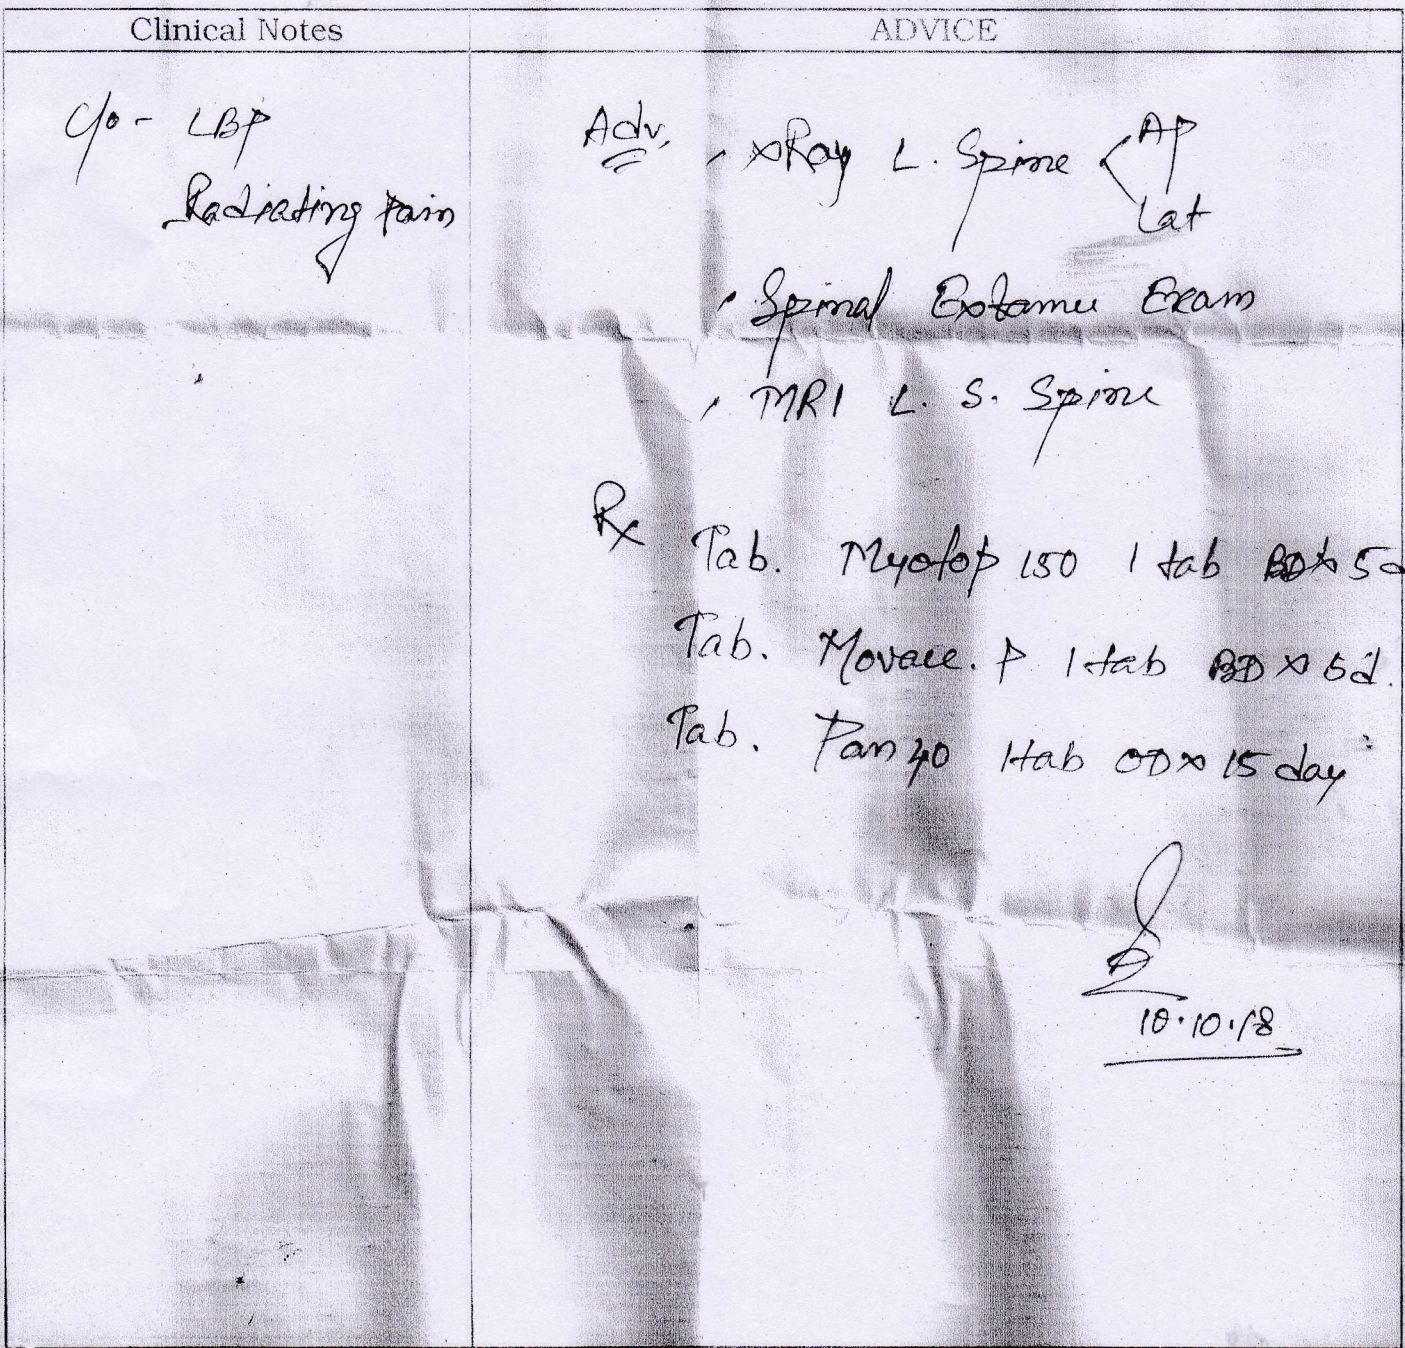 Clinical Notes
ADVICE
c/o - LBP
Radiating pain
Adv.
xRay L. Spine < AP
Lat
Spinal Exam
MRI L. S. Spine
Rx
Tab. Myotop 150 1 tab BD x 5d
Tab. Movace. P 1 tab BD x 5d.
Tab. Pan 40 1 tab OD x 15 day
10.10.18